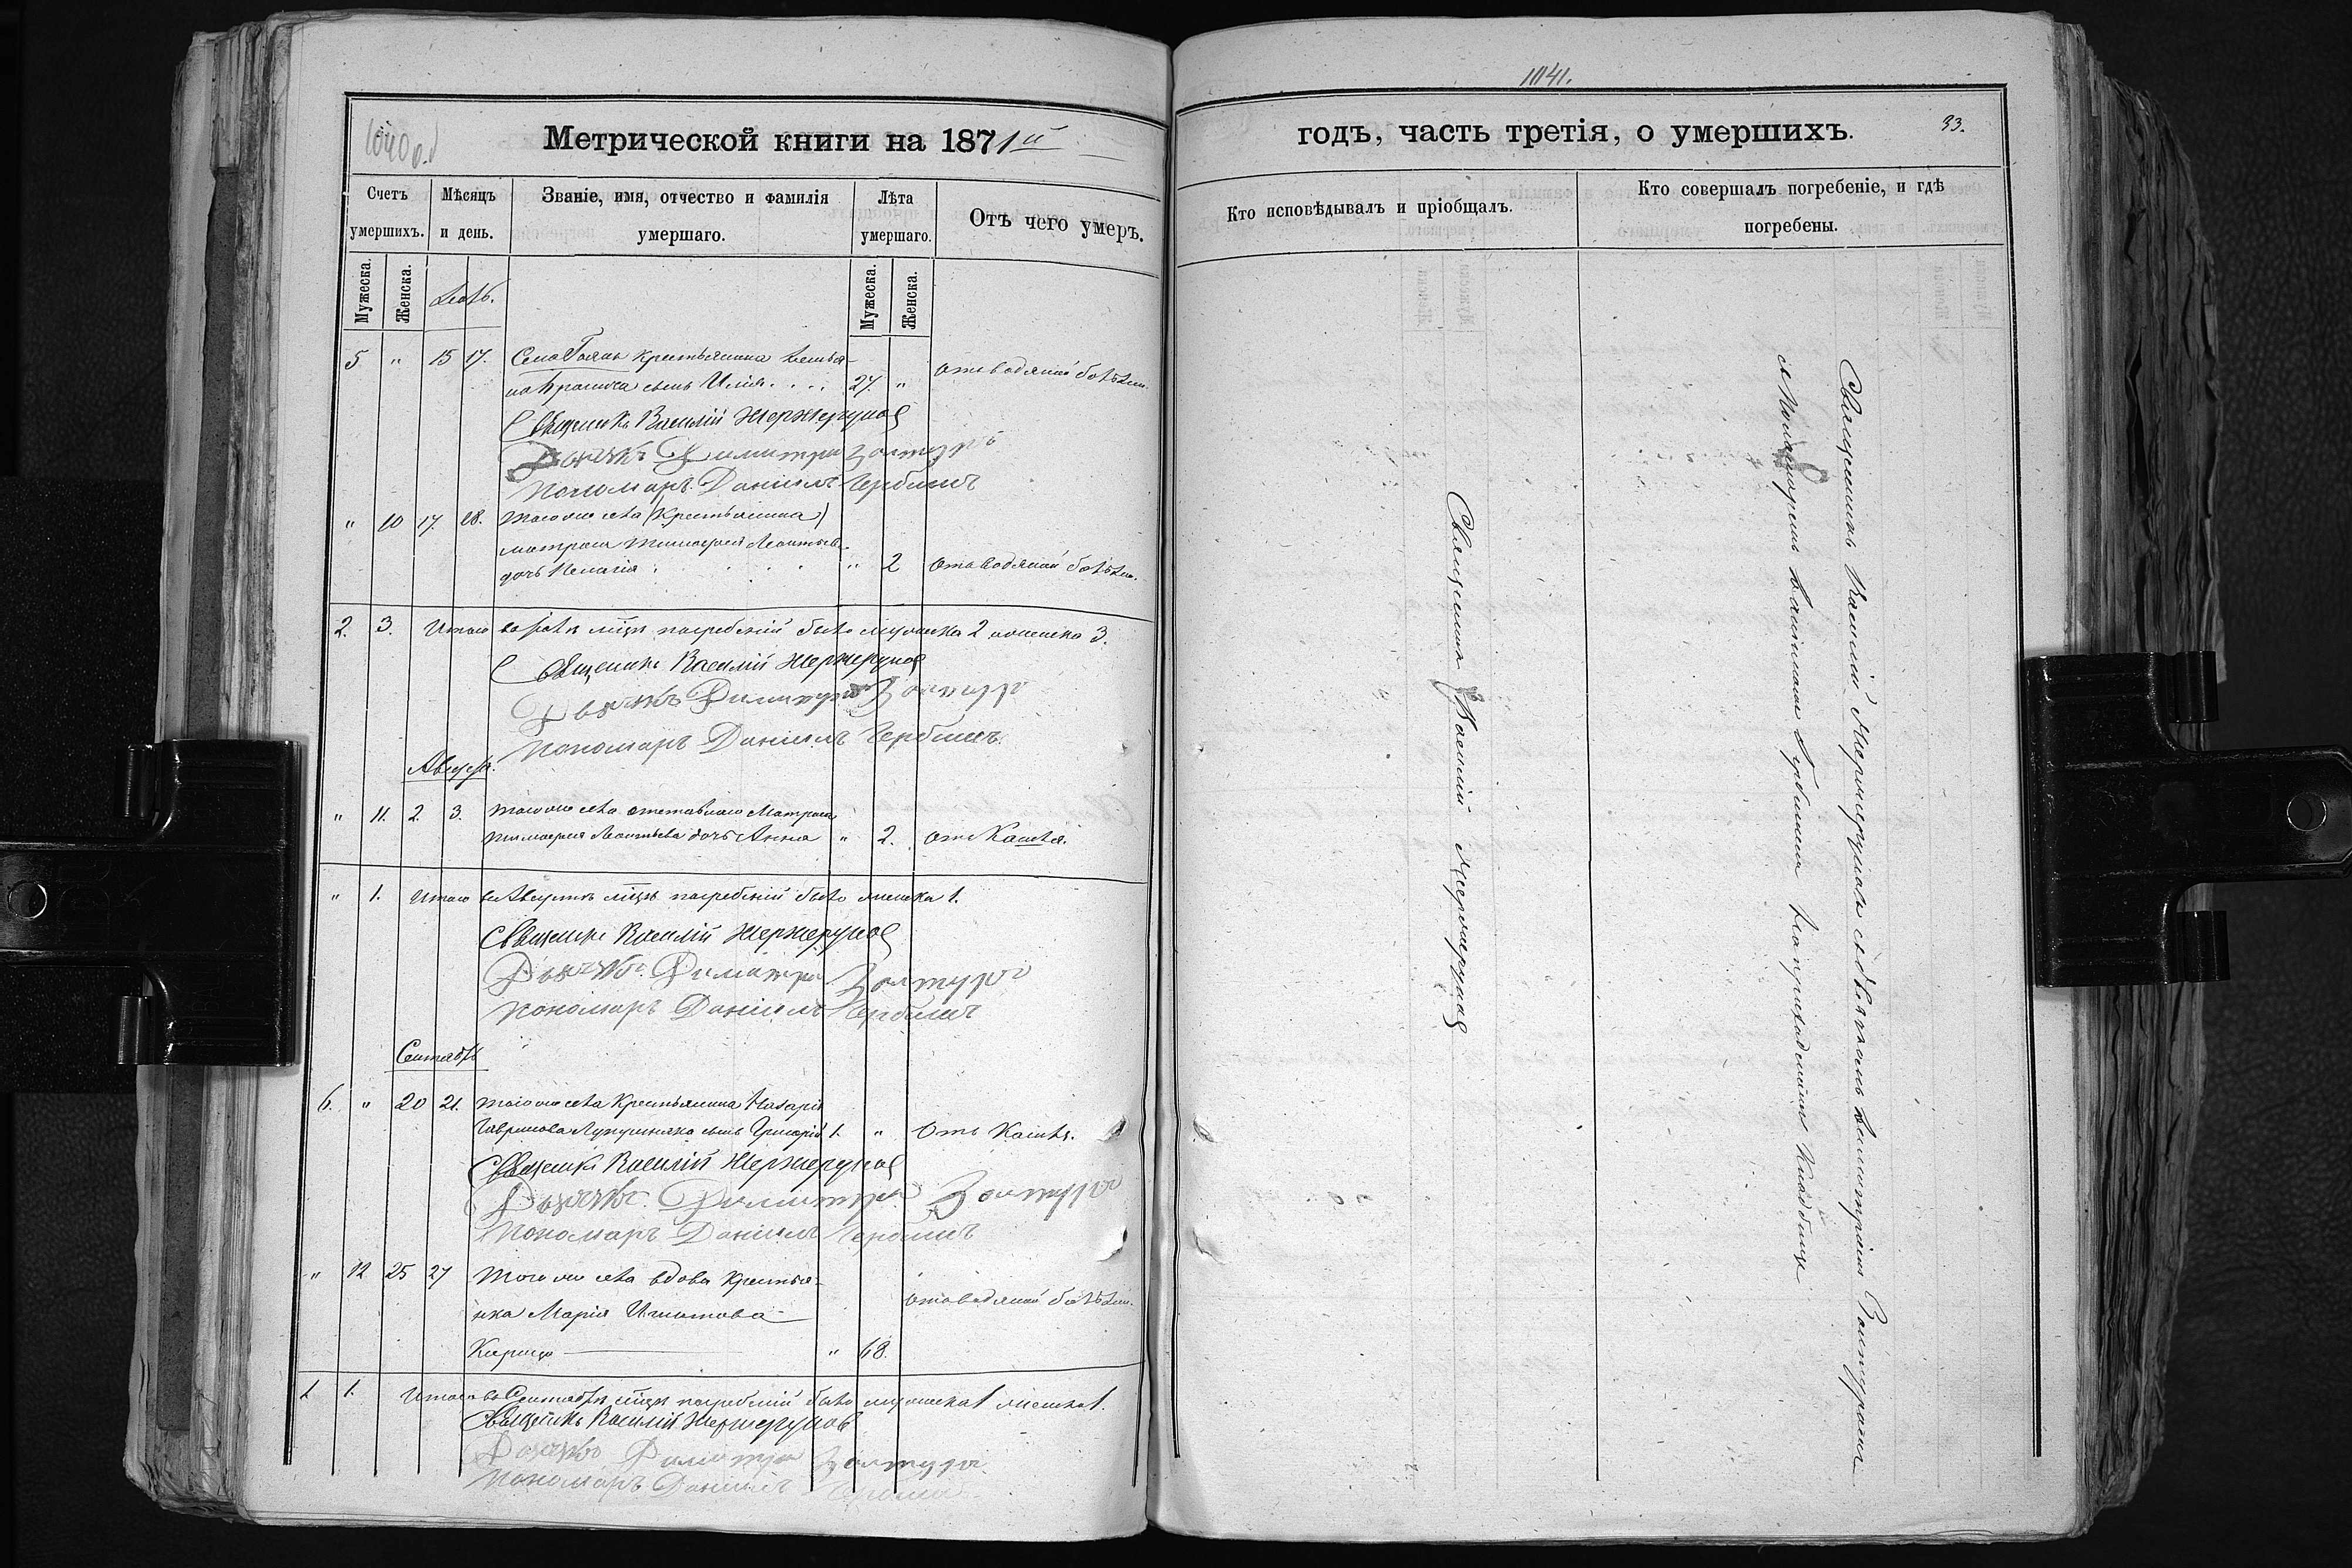 1041.
1040 о.
Метрической книги на 1871й
годъ, часть третія, о умершихъ.
33.
Счетъ умершихъ.
Мѣсяцъ и день.
Званіе, имя, отчество и фамилія умершаго.
Лѣта умершаго.
Отъ чего умеръ.
Кто исповѣдывалъ и пріобщалъ.
Кто совершалъ погребеніе, и гдѣ погребены.
Мужеска.
Женска.
Мужеска.
Женска.
5 " 15 17. Села Гоянъ крестьянина
сынъ Илія . . . . 27. " отъ водяной болѣзни.
Священникъ Василій Жержеруновъ
Дьячекъ Димитрій Золтуръ
Пономарь Даніилъ Чербинъ
" 10 17. 18. того же села (крестьянина)
матроса Тимофея Леонтьева
дочь Пелагія . . . . " 2 отъ водяной болѣзни.
2. 3. Итого въ мцѣ погребеній было мужеска 2 женска 3.
Священникъ Василій Жержеруновъ
Дьячекъ Димитрій Золтуръ
Пономарь Даніилъ Чербинъ.
Августъ.
" 11. 2. 3. того же села отставнаго матроса
Тимофея Леонтьева дочь Анна " 2. отъ кашля.
" 1. Итого въ Августѣ мцѣ погребеній было женска 1.
Священникъ Василій Жержеруновъ
Дьячекъ Димитрій Золтуръ
Пономарь Даніилъ Чербинъ
Сентябрь
6. " 20 21. того же села крестьянина Назарія
Гаврилова сынъ Григорій 1. " Отъ кашля.
Священникъ Василій Жержеруновъ
Дьячекъ Димитрій Золтуръ
Пономарь Даніилъ Чербинъ
" 12 25 27 того же села вдова крестья-
нка Марія Игнатова отъ водяной болѣзни.
" 68.
1 1. Итого въ Сентябрѣ мцѣ погребеній было мужеска 1 женска 1.
Священникъ Василій Жержеруновъ
Дьячекъ Димитрій Золтуръ
Пономарь Даніилъ
Священникъ Василій Жержеруновъ
Священникъ Василій Жержеруновъ съ дьячкомъ Димитріемъ Золтуромъ
и пономаремъ Даніиломъ Чербинымъ на приходскомъ кладбищѣ